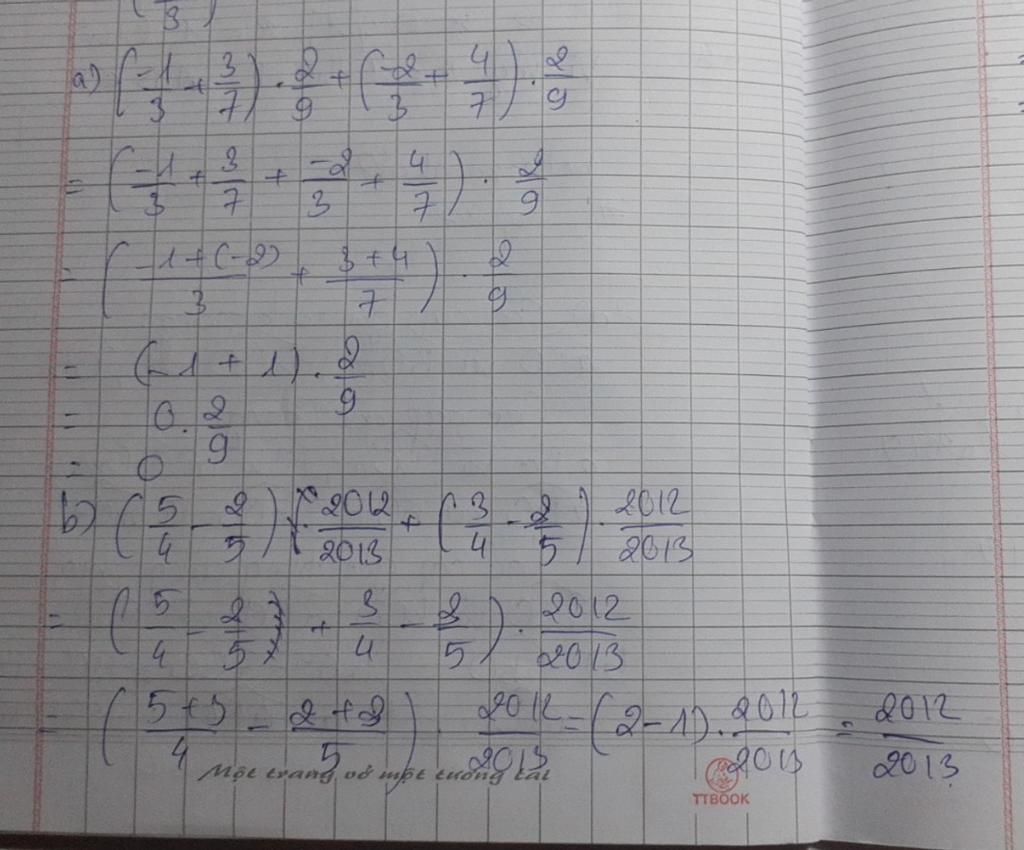 3
a) (-1/3 + 3/7) . 2/9 + (-2/3 + 4/7) . 2/9
= (-1/3 + 3/7 + -2/3 + 4/7) . 2/9
= (-1+(-2)/3 + 3+4/7) . 2/9
= (-1 + 1) . 2/9
= 0 . 2/9
= 0
b) (5/4 - 2/5) . 2012/2013 + (3/4 - 3/5) . 2012/2013
= (5/4 - 2/5 + 3/4 - 3/5) . 2012/2013
= (5+3/4 - 2+3/5) . 2012/2013 = (2-1) . 2012/2013 = 2012/2013
Một trang vở một tương lai
TTBOOK